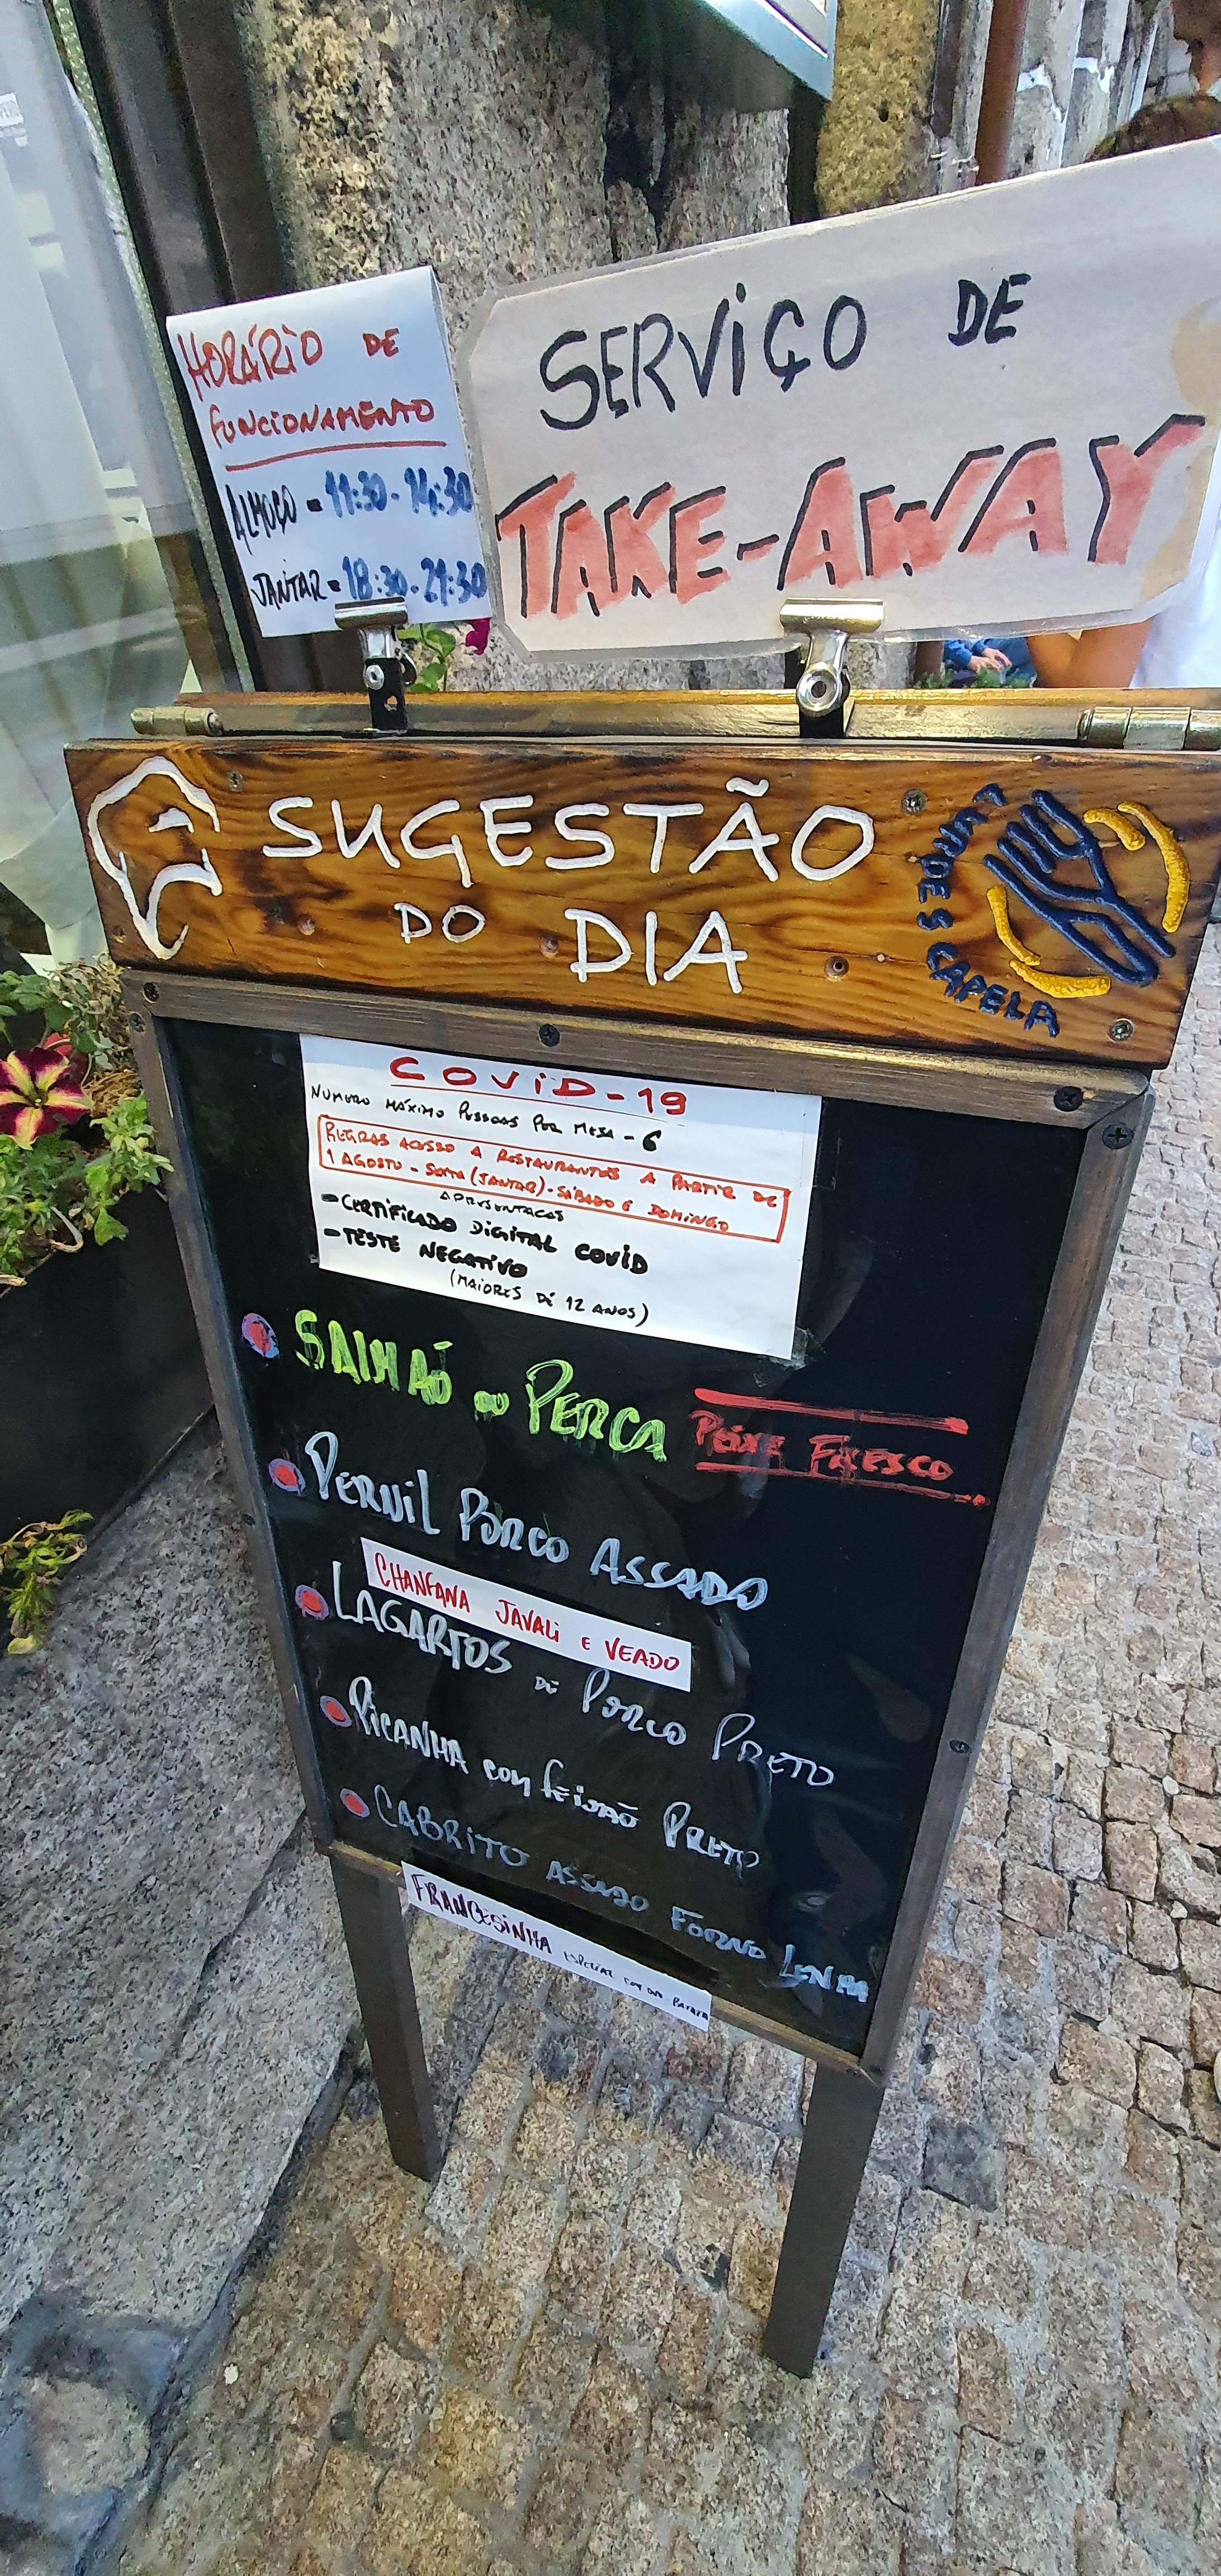 HORÁRIO DE
FUNCIONAMENTO
ALMOÇO - 11:30 - 14:30
JANTAR - 18:30 - 21:30
SERVIÇO DE
TAKE-AWAY
SUGESTÃO
DO DIA
CAPELA
COVID-19
NUMERO MÁXIMO PESSOAS POR MESA - 6
REGRAS ACESSO A RESTAURANTES A PARTIR DE
1 AGOSTO - SEXTA (JANTAR) - SÁBADO E DOMINGO
APRESENTAÇÃO
- CERTIFICADO DIGITAL COVID
- TESTE NEGATIVO
(MAIORES DE 12 ANOS)
SALMÃO OU PERCA PEIXE FRESCO
PERNIL PORCO ASSADO
CHANFANA JAVALI E VEADO
LAGARTOS DE PORCO PRETO
PICANHA COM FEIJÃO PRETO
CABRITO ASSADO FORNO LENHA
FRANCESINHA ESPECIAL COM OVO BATATA